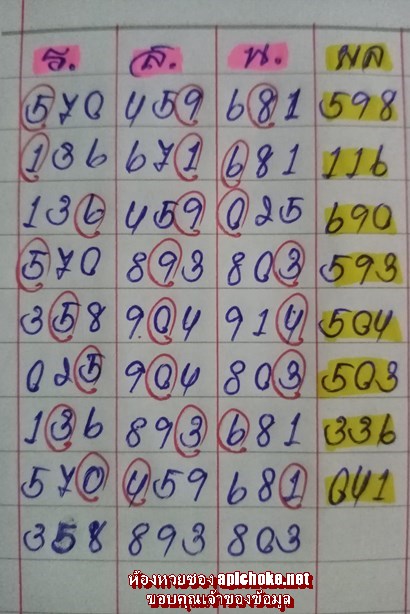 ร. ส. น. ผล
570 459 681 598
136 671 681 116
136 459 025 690
570 893 803 593
358 904 914 504
025 904 803 503
136 893 681 336
570 459 681 041
358 893 803
ห้องหวยซอง aplchoke.net
ขอบคุณเจ้าของข้อมูล